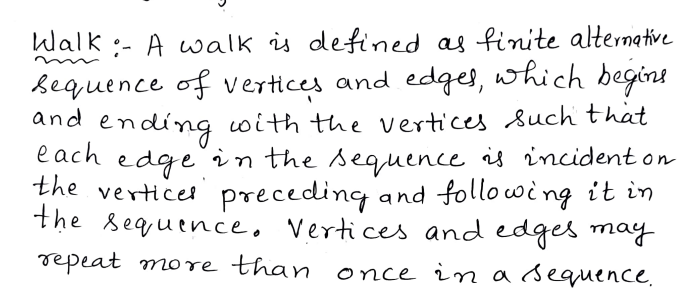 Walk :- A walk is defined as finite alternative
sequence of vertices and edges, which begins
and ending with the vertices such that
each edge in the sequence is incident on
the vertices preceding and following it in
the sequence. Vertices and edges may
repeat more than once in a sequence.